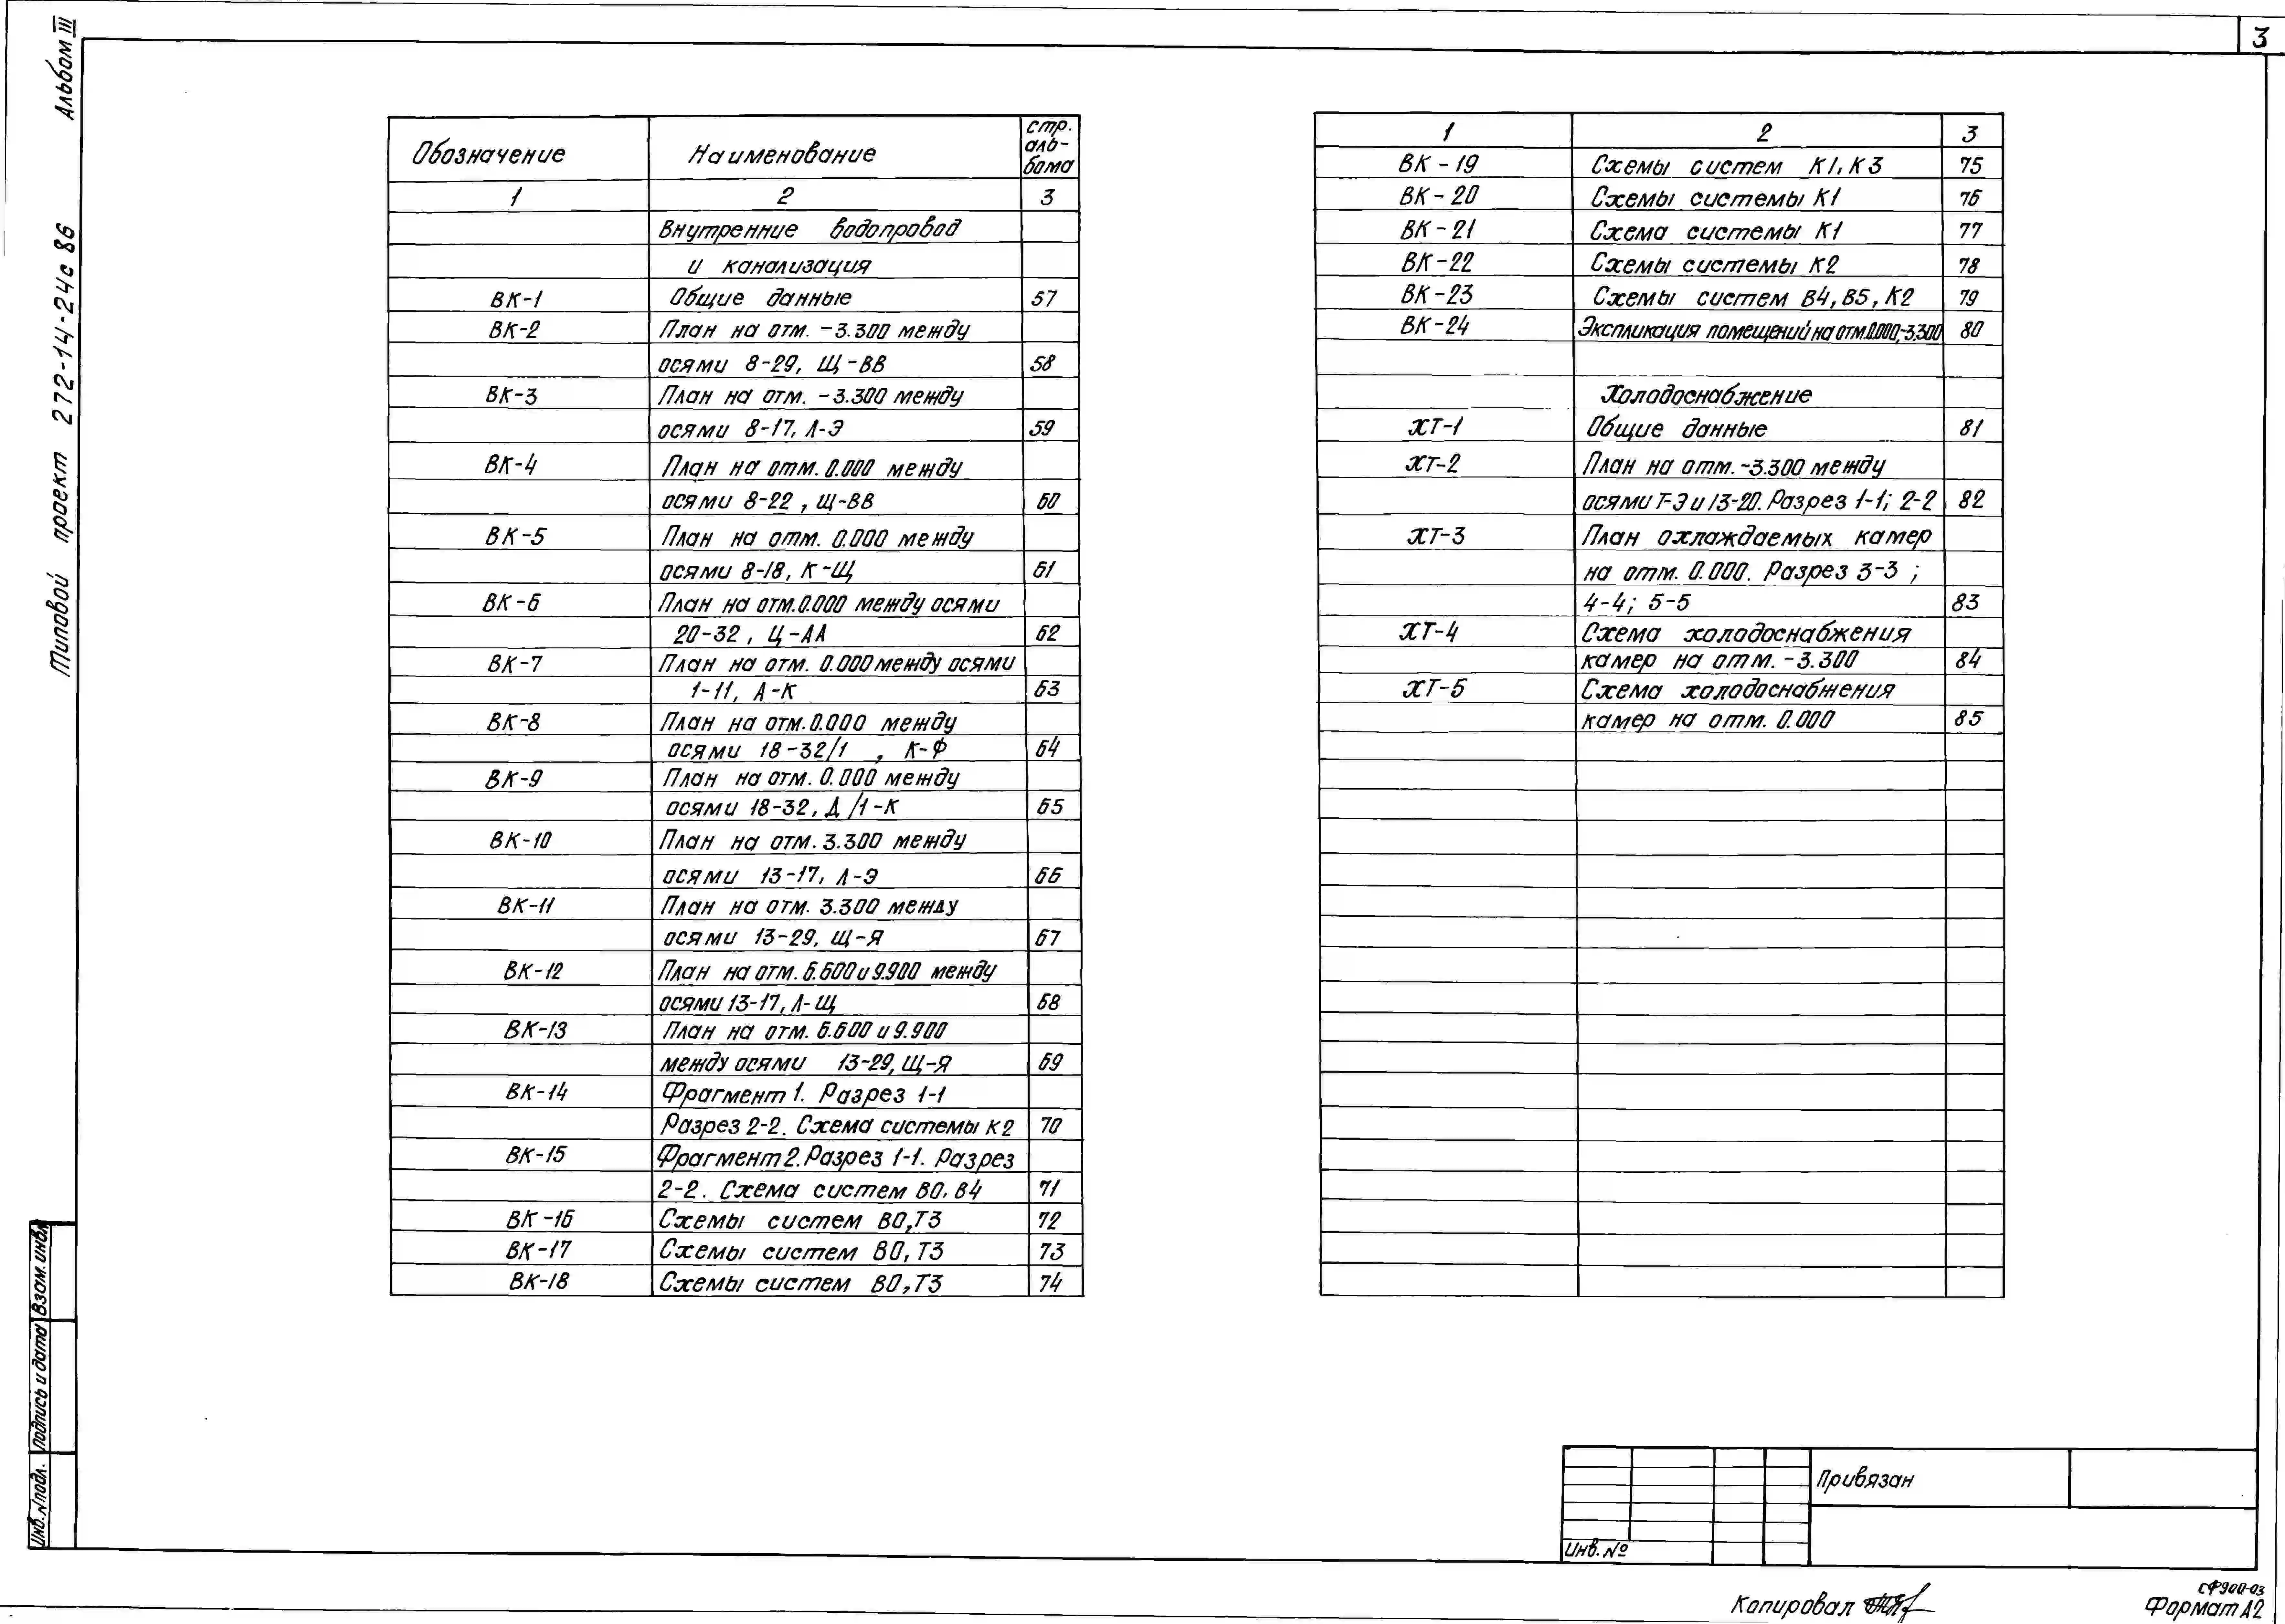 3
Альбом III
Типовой проект 272-14-24с 86
Обозначение Наименование стр. аль-бома
1 2 3
Внутренние водопровод
и канализация
ВК-1 Общие данные 57
ВК-2 План на отм. -3.300 между
осями 8-29, Щ-ВВ 58
ВК-3 План на отм. -3.300 между
осями 8-17, Л-Э 59
ВК-4 План на отм. 0.000 между
осями 8-22, Щ-ВВ 60
ВК-5 План на отм. 0.000 между
осями 8-18, К-Щ 61
ВК-6 План на отм. 0.000 между осями
20-32, Ц-АА 62
ВК-7 План на отм. 0.000 между осями
1-11, А-К 63
ВК-8 План на отм. 0.000 между
осями 18-32/1 , К-Ф 64
ВК-9 План на отм. 0.000 между
осями 18-32, Д/1-К 65
ВК-10 План на отм. 3.300 между
осями 13-17, Л-Э 66
ВК-11 План на отм. 3.300 между
осями 13-29, Щ-Я 67
ВК-12 План на отм. 6.600 и 9.900 между
осями 13-17, Л-Щ 68
ВК-13 План на отм. 6.600 и 9.900
между осями 13-29, Щ-Я 69
ВК-14 Фрагмент 1. Разрез 1-1
Разрез 2-2. Схема системы К2 70
ВК-15 Фрагмент 2. Разрез 1-1. Разрез
2-2. Схема систем В0, В4 71
ВК-16 Схемы систем В0, Т3 72
ВК-17 Схемы систем В0, Т3 73
ВК-18 Схемы систем В0, Т3 74
1 2 3
ВК-19 Схемы систем К1, К3 75
ВК-20 Схемы системы К1 76
ВК-21 Схема системы К1 77
ВК-22 Схемы системы К2 78
ВК-23 Схемы систем В4, В5, К2 79
ВК-24 Экспликация помещений на отм. 0.000, -3.300 80
Холодоснабжение
ХТ-1 Общие данные 81
ХТ-2 План на отм. -3.300 между
осями Г-Э и 13-20. Разрез 1-1; 2-2 82
ХТ-3 План охлаждаемых камер
на отм. 0.000. Разрез 3-3 ;
4-4; 5-5 83
ХТ-4 Схема холодоснабжения
камер на отм. -3.300 84
ХТ-5 Схема холодоснабжения
камер на отм. 0.000 85
Взам. инв.№
Подпись и дата
Инв. № подл.
Привязан
Инв. №
Копировал
СФ900-03
Формат А2